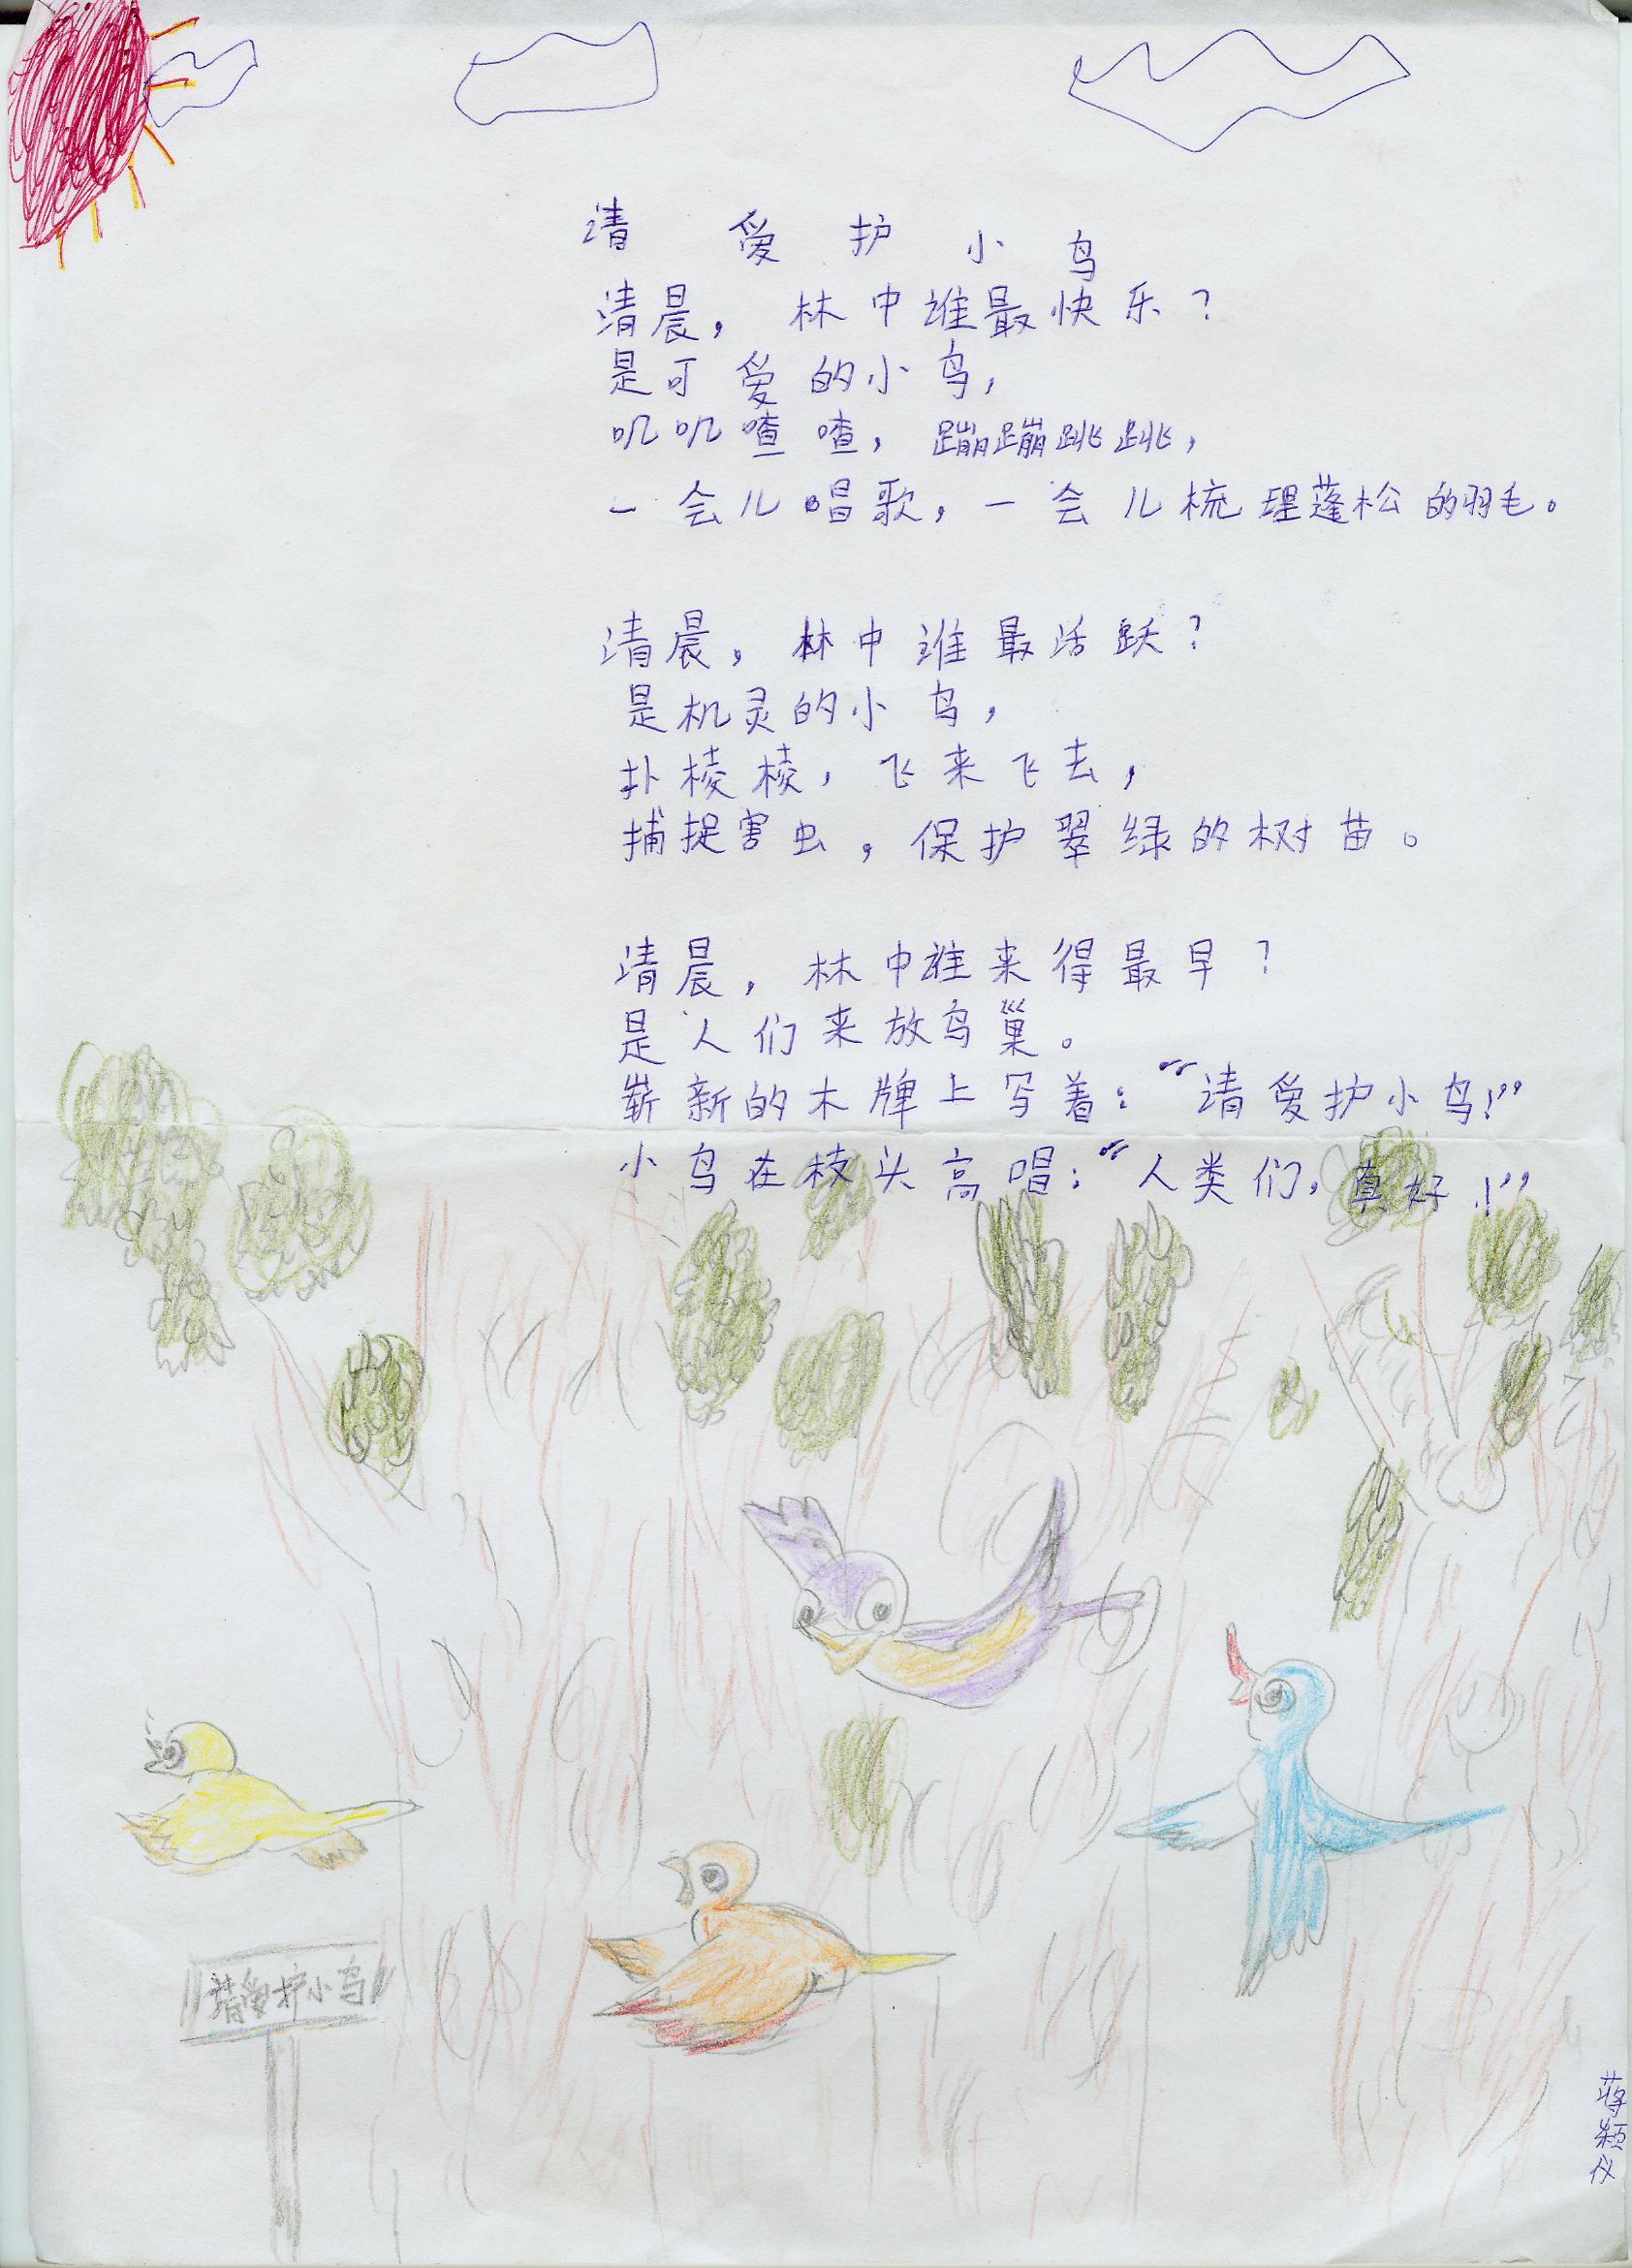 请爱护小鸟
清晨，林中谁最快乐？
是可爱的小鸟，
叽叽喳喳，蹦蹦跳跳，
一会儿唱歌，一会儿梳理蓬松的羽毛。
清晨，林中谁最活跃？
是机灵的小鸟，
扑棱棱，飞来飞去，
捕捉害虫，保护翠绿的树苗。
清晨，林中谁来得最早？
是人们来放鸟巢。
崭新的木牌上写着：“请爱护小鸟！”
小鸟在枝头高唱：“人类们，真好！”
请爱护小鸟
蒋颖仪